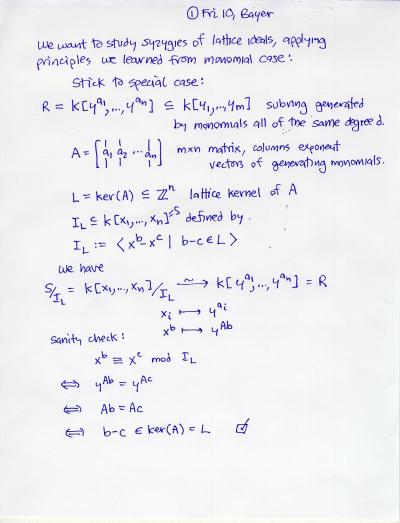 ① Fri 10, Bayer
We want to study syzygies of lattice ideals, applying
principles we learned from monomial case:
Stick to special case:
R = k[y^{a_1},...,y^{a_n}] ⊆ k[y_1,...,y_m] subring generated
by monomials all of the same degree d.
A = [a_1 a_2 ... a_n] m×n matrix, columns exponent
vectors of generating monomials.
L = ker(A) ⊆ ℤ^n lattice kernel of A
I_L ⊆ k[x_1,...,x_n] = S defined by
I_L := ⟨x^b - x^c | b-c ∈ L⟩
We have
S/I_L = k[x_1,...,x_n]/I_L ⟶~ k[y^{a_1},...,y^{a_n}] = R
x_i ↦ y^{a_i}
x^b ↦ y^{Ab}
Sanity check:
x^b ≡ x^c mod I_L
⇔ y^{Ab} = y^{Ac}
⇔ Ab = Ac
⇔ b-c ∈ ker(A) = L ☑